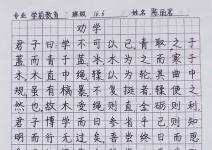 专业 学前教育 班级 16.6 姓名 陈丽君
劝学
君子曰学不可以已青取之于
蓝而青于蓝冰水为之而寒于
水木直中绳輮以为轮其曲中
规虽有槁暴不复挺者輮使之
然也故木受绳则直金砺则利
君子博学而日参省乎己则知
明而行无过矣吾尝终日而思